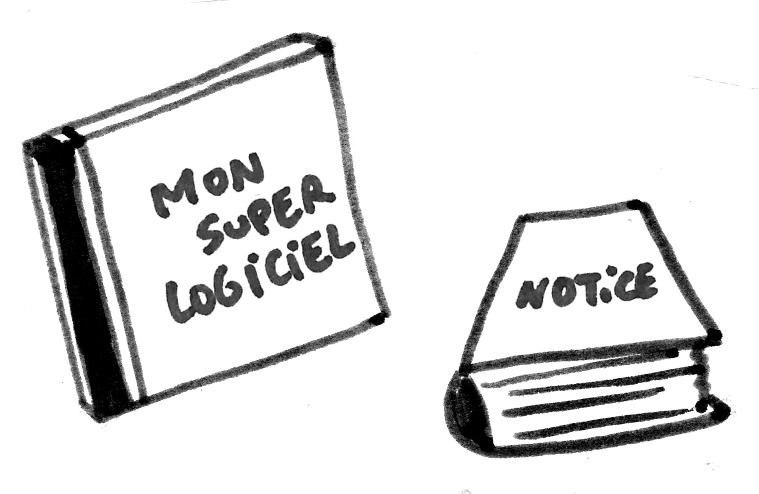 MON
SUPER
LOGiCiEL
NOTiCE